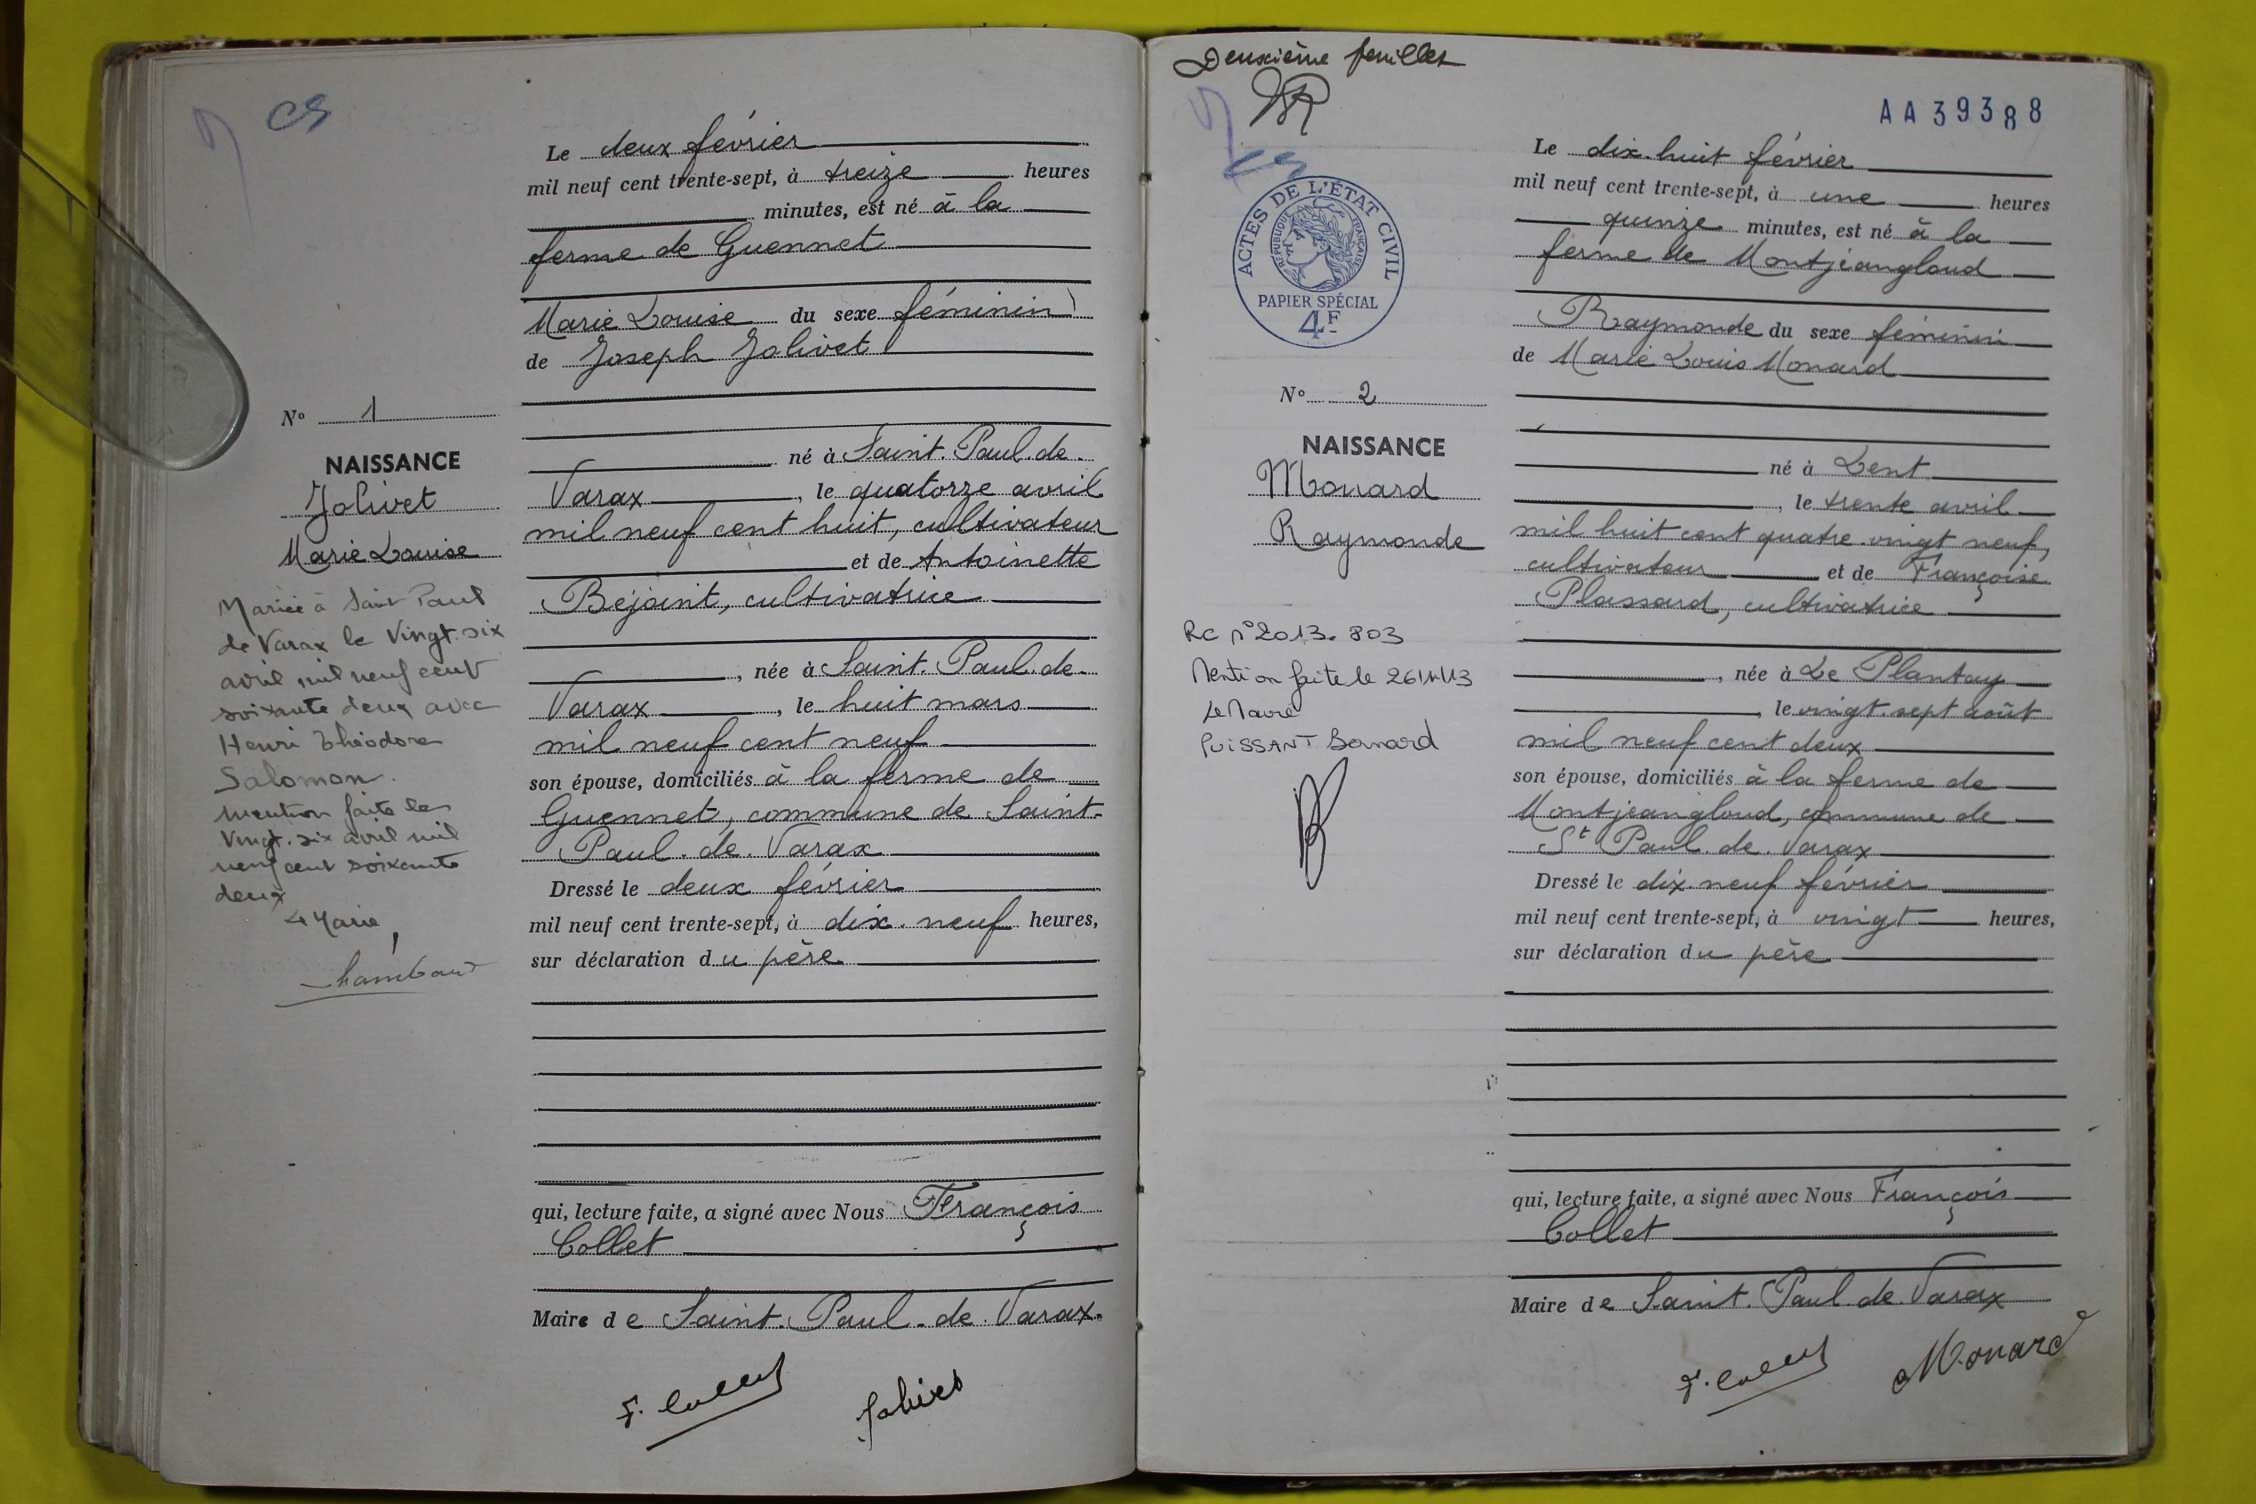 Le deux février
mil neuf cent trente-sept, à treize heures
minutes, est né à la
ferme de Guennet
Marie Louise du sexe féminin
de Joseph Jolivet
N° 1
NAISSANCE
Jolivet
Marie Louise
né à Saint. Paul. de.
Varax, le quatorze avril
mil neuf cent huit, cultivateur
et de Antoinette
Béjoint, cultivatrice
, née à Saint. Paul. de.
Varax, le huit mars
mil neuf cent neuf
son épouse, domiciliés à la ferme de
Guennet, commune de Saint.
Paul. de. Varax
Dressé le deux février
mil neuf cent trente-sept, à dix. neuf heures,
sur déclaration du père
qui, lecture faite, a signé avec Nous François
Collet
Maire de Saint. Paul. de. Varax.
F. Collet
Jolivet
Mariée à Saint Paul
de Varax le Vingt. six
avril mil neuf cent
soixante deux avec
Henri Théodore
Salomon.
Mention faite le
Vingt. six avril mil
neuf cent soixante
deux
Le Maire,
Deuxième feuillet
AA39388
ACTES DE L'ÉTAT CIVIL
RÉPUBLIQUE FRANÇAISE
PAPIER SPÉCIAL
4F
Le dix. huit février
mil neuf cent trente-sept, à une heures
quinze minutes, est né à la
ferme de Montjeangloud
Raymonde du sexe féminin
de Marie Louis Monard
N° 2
NAISSANCE
Monard
Raymonde
né à Lent
, le trente avril
mil huit cent quatre. vingt neuf,
cultivateur et de Françoise
Plassard, cultivatrice
, née à Le Plantay
, le vingt. sept août
mil neuf cent deux
son épouse, domiciliés à la ferme de
Montjeangloud, commune de
St Paul. de. Varax
Dressé le dix. neuf février
mil neuf cent trente-sept, à vingt heures,
sur déclaration du père
qui, lecture faite, a signé avec Nous François
Collet
Maire de Saint. Paul. de. Varax
F. Collet
Monard
RC n° 2013. 803
Mention faite le
Le Maire
PUISSANT Bernard